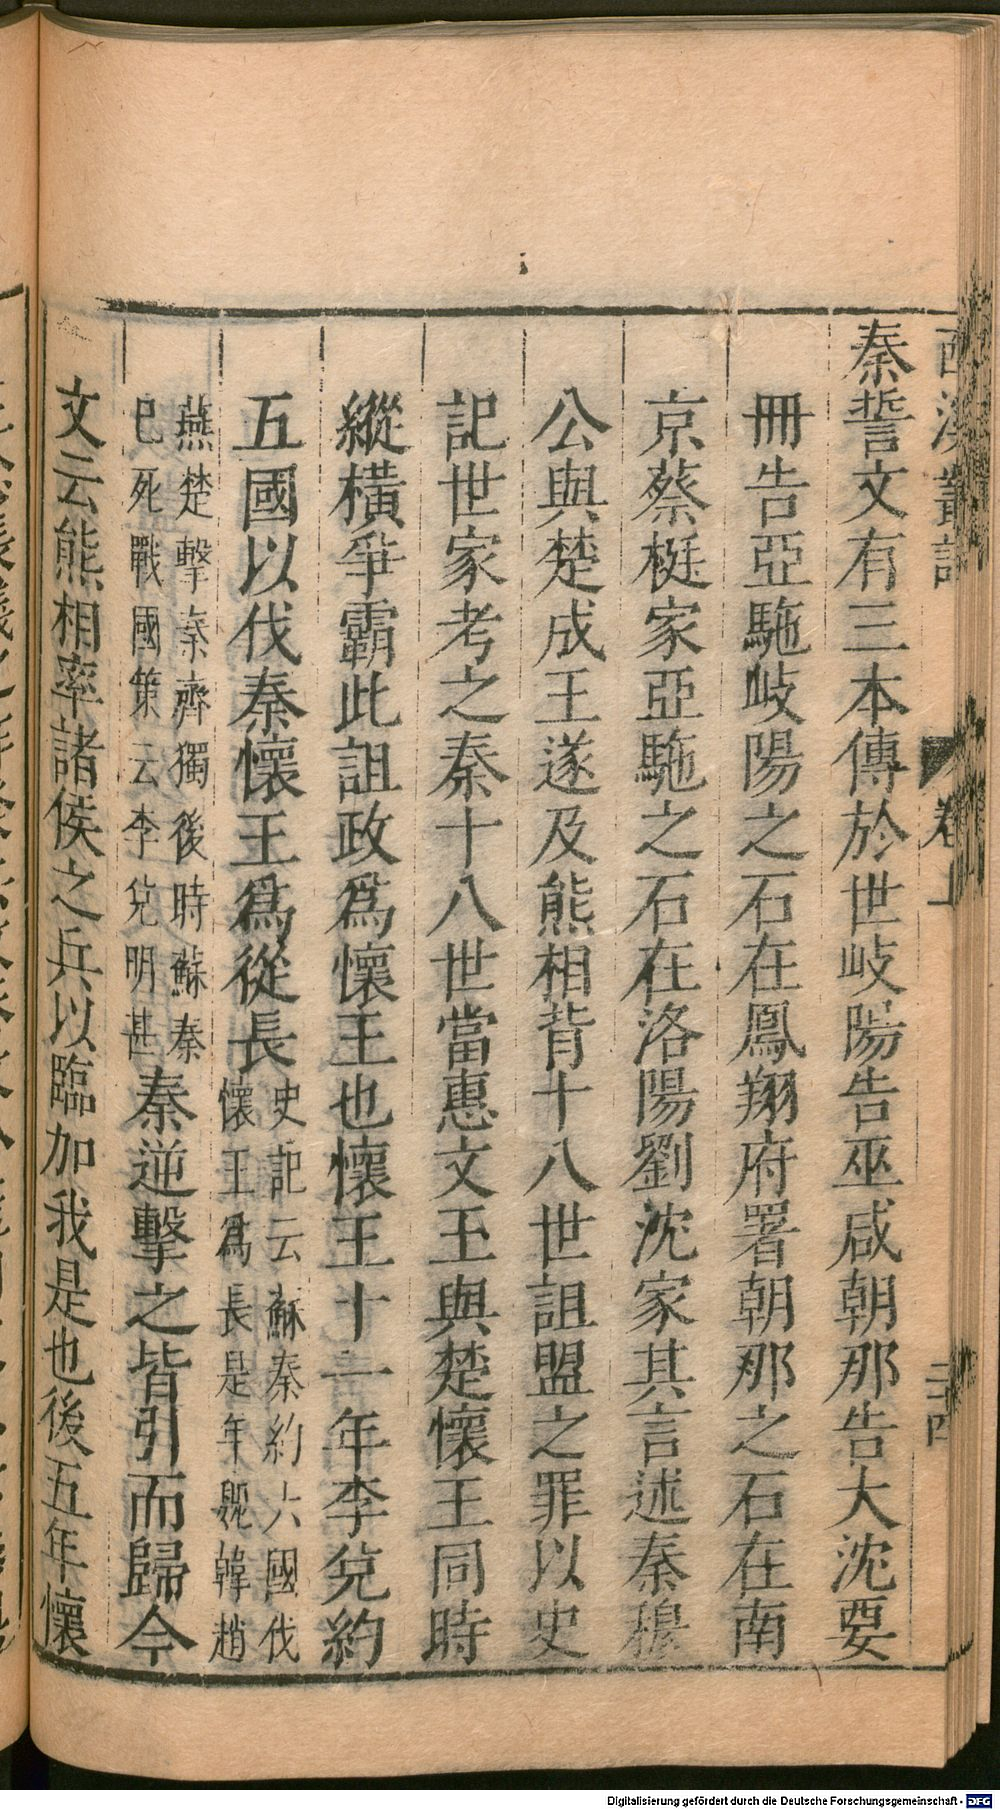 西溪叢語 卷上 二十四
秦誓文有三本傳於世岐陽告巫咸朝那告大沈要
冊告亞駞岐陽之石在鳳翔府署朝那之石在南
京蔡梃家亞駞之石在洛陽劉沈家其言述秦穆
公與楚成王遂及熊相背十八世詛盟之罪以史
記世家考之秦十八世當惠文王與楚懷王同時
縱橫爭霸此詛政爲懷王也懷王十一年李兌約
五國以伐秦懷王爲從長史記云蘇秦約六國伐
懷王爲長是年魏韓趙
燕楚擊秦齊獨後時蘇秦
已死戰國策云李兌明甚秦逆擊之皆引而歸今
文云熊相率諸侯之兵以臨加我是也後五年懷
Digitalisierung gefördert durch die Deutsche Forschungsgemeinschaft - DFG